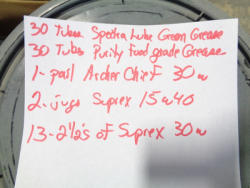 30 Tubes Spectra Lube Green Grease
30 Tubes Purity Food grade Grease
1- pail Archer Chief 30w
2- jugs Suprex 15w40
13- 2½'s of Suprex 30w